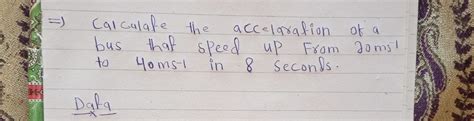 =) Calculate the accelaration of a
bus that speed up From 20ms-1
to 40ms-1 in 8 seconds.
Data